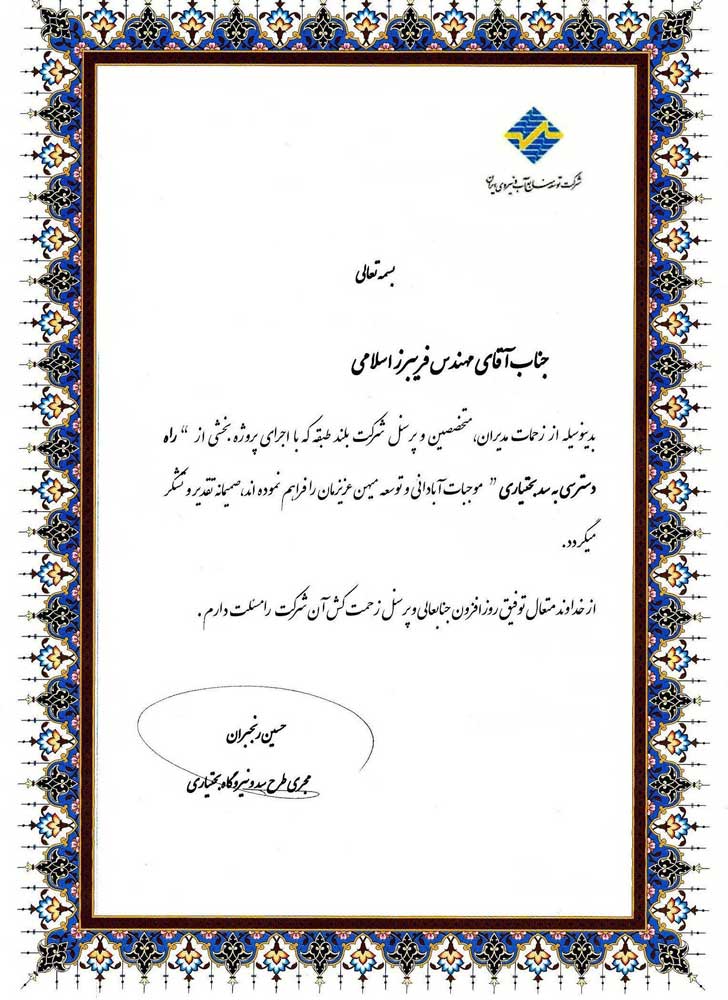 شرکت توسعه منابع آب و نیروی ایران
بسمه تعالی
جناب آقای مهندس فریبرز اسلامی
بدینوسیله از زحمات مدیران، متخصصین و پرسنل شرکت بلند طبقه که با اجرای پروژه بخشی از “ راه
دسترسی به سد بختیاری ” موجبات آبادانی و توسعه میهن عزیزمان را فراهم نموده اند، صمیمانه تقدیر و تشکر
میگردد.
از خداوند متعال توفیق روز افزون جنابعالی و پرسنل زحمت کش آن شرکت را مسئلت دارم .
حسین رنجبران
مجری طرح سد و نیروگاه بختیاری